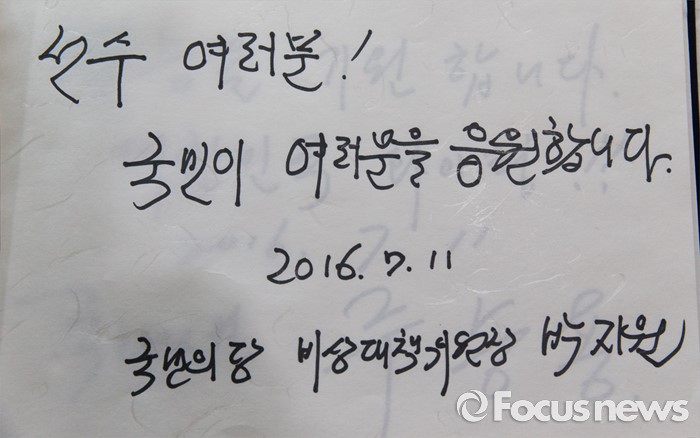 선수 여러분!
국민이 여러분을 응원합니다.
2016. 7. 11
국민의당 비상대책위원장 박지원
Focusnews